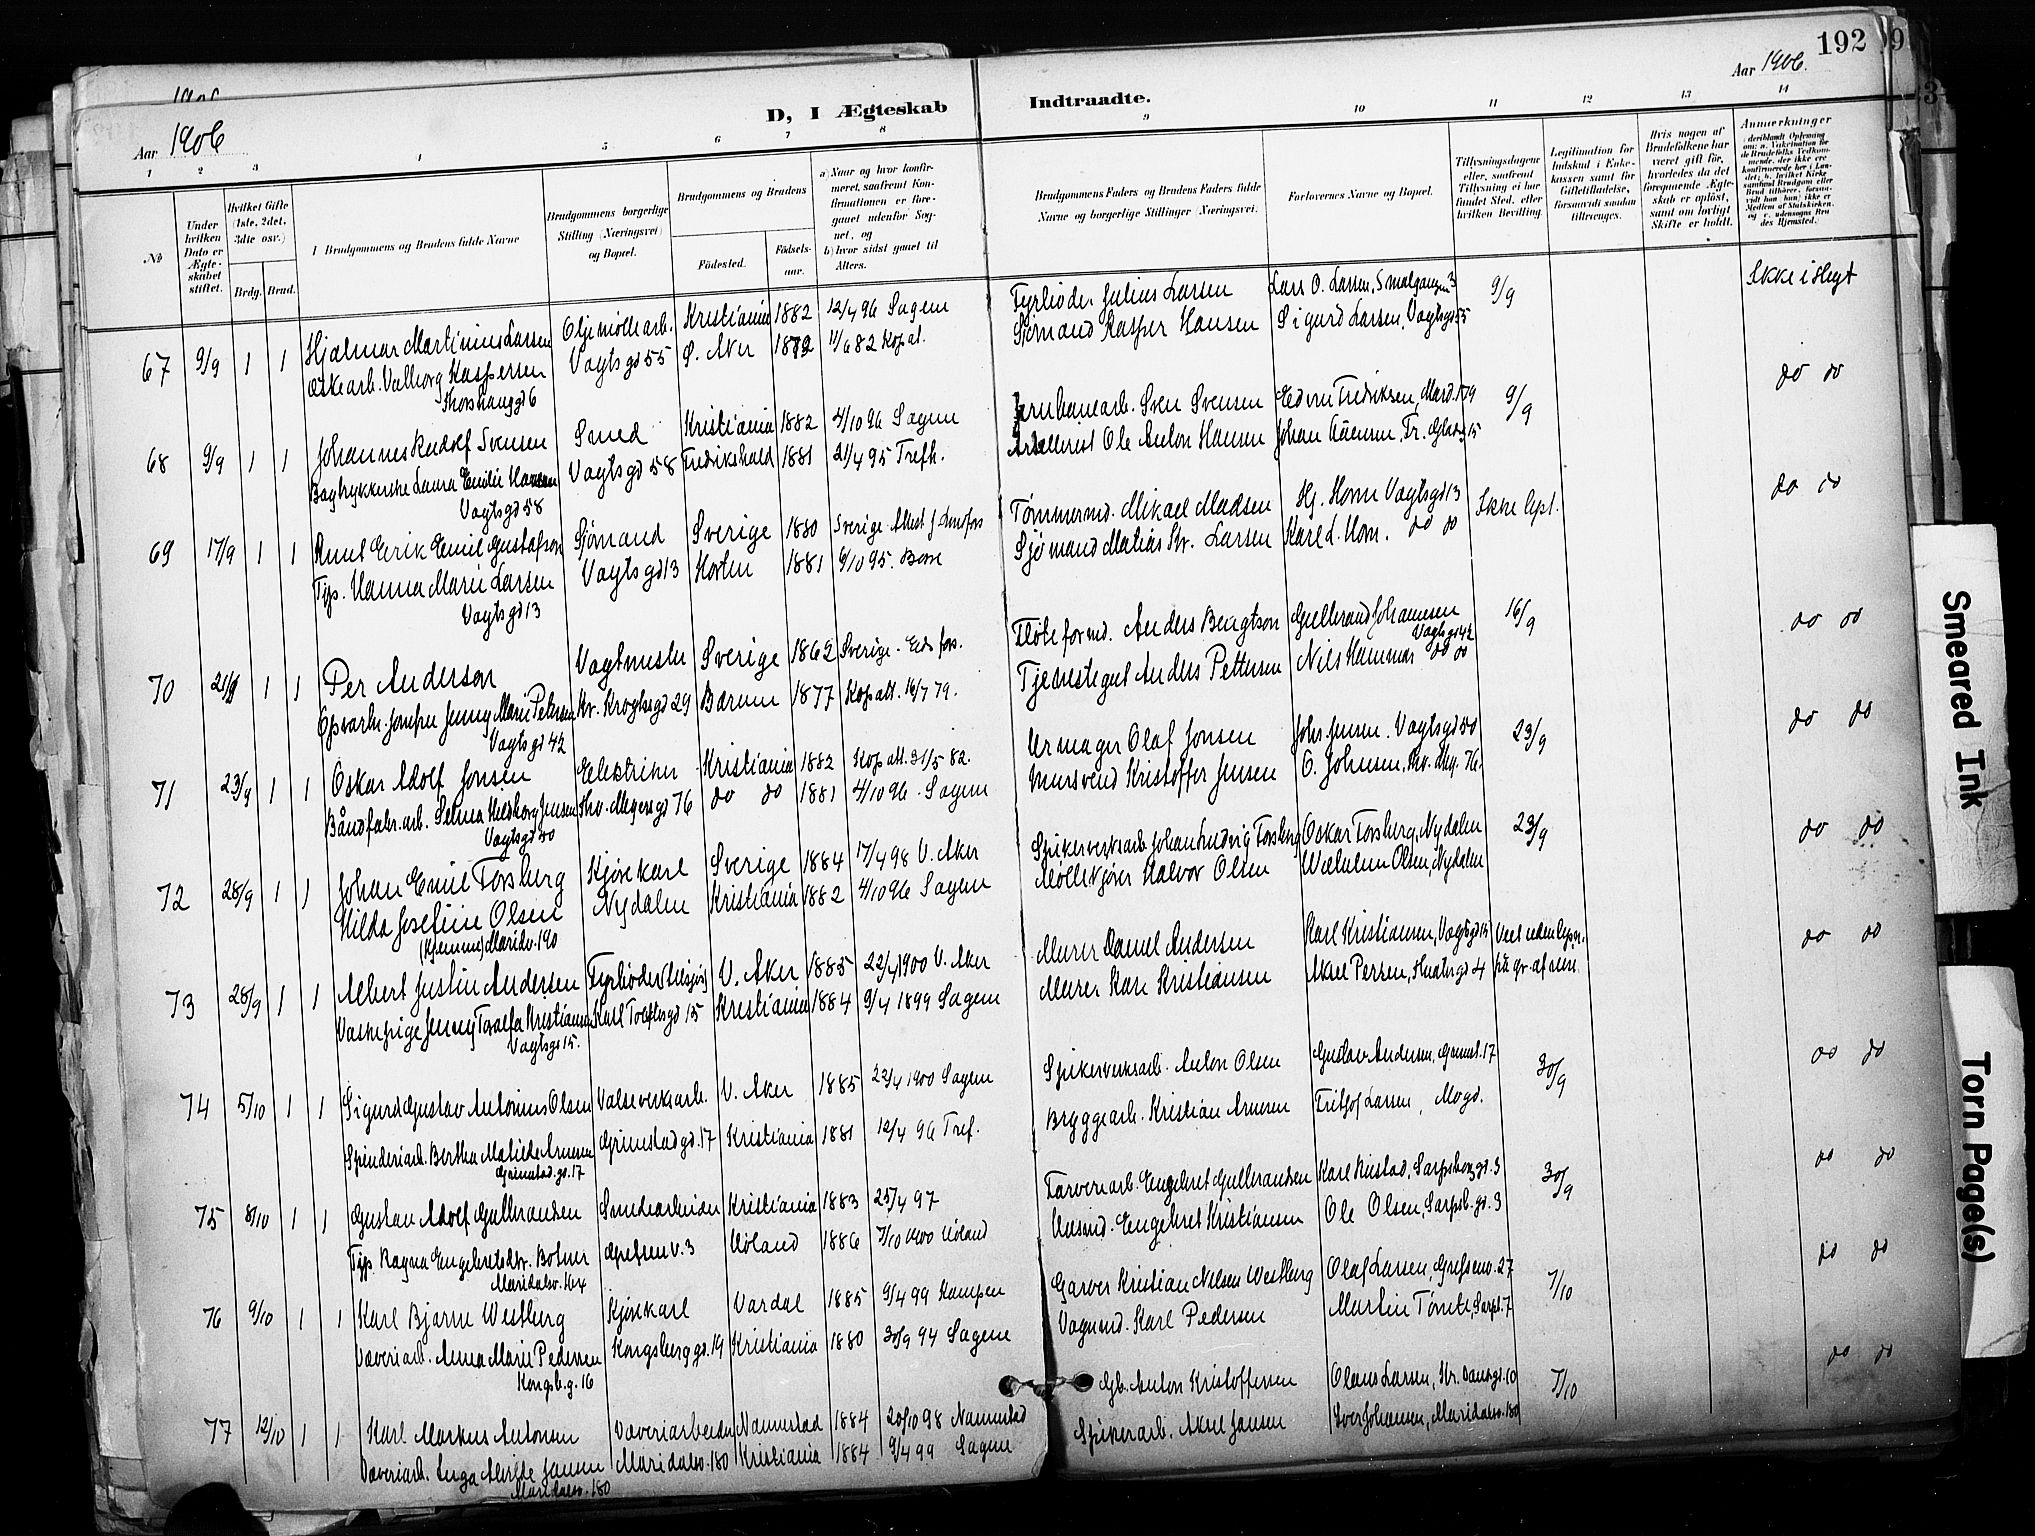 192
Aar 1906.
Aar 1906
D, I Ægteskab Indtraadte.
1 2 3 4 5 6 7 8 9 10 11 12 13 14
No
Under hvilken Dato er Ægteskabet stiftet.
Hvilket Gifte (1ste, 2det, 3die osv.)
Brdg. Brud.
Brudgommens og Brudens fulde Navne
Brudgommens borgerlige Stilling (Næringsvei) og Bopæl.
Brudgommens og Brudens
Fødested. Fødselsaar.
a) Naar og hvor konfirmeret, saafremt Konfirmationen er foregaaet udenfor Sognet, og
b) hvor sidst gaaet til Alters.
Brudgommens Faders og Brudens Faders fulde Navne og borgerlige Stillinger (Næringsvei.
Forlovernes Navne og Bopæl.
Tillysningsdagene eller, saafremt Tillysning ei har fundet Sted, efter hvilken Bevilling.
Legitimation for Indskud i Enkekassen samt for Giftetilladelse, forsaavidt saadan tiltrenges.
Hvis nogen af Brudefolkene har været gift før, hvorledes da det foregaaende Ægteskab er opløst, samt om lovligt Skifte er holdt.
Anmerkninger
67 9/9 1 1 Hjalmar Martinius Larsen Oljemøllearb. Kristiania 1882 12/4 96 Sagene Fyrbøder Julius Larsen Lars O. Larsen, Smalgangen 3 9/9 Ikke i Slegt
Æskearb. Valborg Kaspersen Vogtsgd 55 Ø. Aker 11/6 82 Kopat. Sjømand Kasper Hansen Sigurd Larsen, Vogtsgd 55
Thorshauggd 6
68 9/9 1 1 Johannes Rudolf Svensen Smed Kristiania 1882 4/10 96 Sagene Jernbanearb. Sven Svensen Edvin Fredriksen, 9/9 do do
Laura Emilie Hansen Vogtsgd 58 Fredrikshald 1881 21/4 95 Trefh. Ole Anton Hansen Johan
Vogtsgd 58
69 17/9 1 1 Knut Erik Emil Gustafson Sjømand Sverige 1880 Sverige Tømmermd. Mikael Madsen Hj. Horn Vogtsgd 13 Ikke lyst. do do
Tjp. Hanna Marie Larsen Vogtsgd 13 Horten 1881 9/10 95. Borre Sjømand Matias Kr. Larsen Karl L. Horn. do do
Vogtsgd 13
70 1 1 Per Anderson Vogtmester Sverige 1862 Sverige. Flöteformd. Anders Bengtson Gulbrand Johannesen 16/9 do do
Vogtsgd 42
Jenny Marie Petersen Kr. Kroghsgd 29 Bærum 1877 Kopatt. 16/7 79. Tjenestegut Anders Pettersen Nils Hammar do do
Vogtsgd 42
71 23/9 1 1 Oskar Adolf Jonsen Elektriker Kristiania 1882 Kopatt. 31/5 82. Urmager Olaf Jonsen Johs. Jensen. Vogtsgd 50 23/9 do do
Båndfabr.arb. Selma Hildborg Jensen Thv. Meyersgd 76 do do 1881 4/10 96. Sagene Mursvend Kristoffer Jensen O. Johnsen, Thv. Mey. 76.
Vogtsgd 50
72 28/9 1 1 Johan Emil Forsberg Kjørekarl Sverige 1884 17/4 98 V. Aker Spikerverksarb. Johan Ludvig Forsberg Oskar Forsberg, Nydalen 23/9 do do
Hilda Josefine Olsen Nydalen Kristiania 1882 4/10 96 Sagene Møllekjører Halvor Olsen Wilhelm Olsen, Nydalen
(Hjemme) Maridv. 190
73 28/9 1 1 Albert Justin Andersen Fyrbøder V. Aker 1885 22/4 1900 V. Aker Murer Daniel Andersen Karl Kristiansen, Vogtsgd 15 do do
Vaskepige Jenny Toralfa Kristiansen Karl Toeftesgd 15 Kristiania 1884 9/4 1899 Sagene Murer Karl Kristiansen Aksel Persen,
Vogtsgd 15.
74 5/10 1 1 Sigurd Gustav Antonius Olsen Valseverksarb. V. Aker 1885 22/4 1900 Sagene Spikerverksarb. Anton Olsen Gustav Andersen, Grimst. 17 30/9 do do
Spinderiarb. Bertha Matilde Arnesen Grimstadgd. 17 Kristiania 1881 12/4 96 Tref. Bryggearb. Kristian Arnesen Fritjof Larsen, Mogd.
Grimstad.gd. 17
75 8/10 1 1 Gustav Adolf Gulbrandsen Smedearbeider Kristiania 1883 25/4 97 Farveriarb. Engebret Gulbrandsen Karl Sarpsborggd. 3 30/9 do do
Tjp. Ragna Engebretsdtr. Botner Grefsen v. 3 Høland 1886 7/10 1900 Høland Husmd. Engebret Kristiansen Ole Olsen, Sarpsb.gd. 3
76 9/10 1 1 Karl Bjarne Westberg Kjørekarl Vardal 1885 9/4 99 Kampen Garver Kristian Nilsen Westberg Olaf Larsen, Grefsenv. 27 7/10 do do
Væveriarb. Anna Marie Pedersen Kongsberggd. 14 Kristiania 1880 30/9 94 Sagene Vognmd. Karl Pedersen Martin Tømte, Sarpsb. 7
Kongsb.g. 16
77 12/10 1 1 Karl Markus Antonsen Væveriarbeider Nannestad 1884 20/10 98 Nannestad Gb. Anton Kristoffersen Olaus Larsen, 7/10 do do
Væveriarb. Inga Alvilde Jansen Maridalsv. 180 Kristiania 1884 9/4 99 Sagene Spikerarb. Aksel Jansen Iver Johansen, Maridalsv. 180
Maridalsv. 180
Smeared Ink
Torn Page(s)